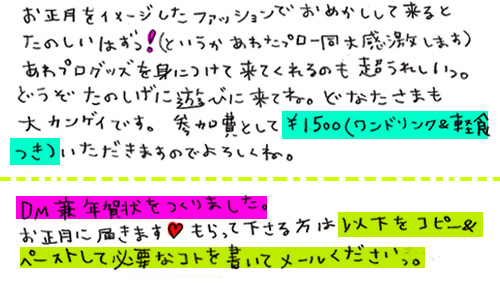 お正月をイメージしたファッションでおめかしして来ると
たのしいはずっ!(というかあわたプロ一同大感激します)
あわプログッズを身につけて来てくれるのも超うれしいっ。
どうぞたのしげに遊びに来てね。どなたさまも
大カンゲイです。参加費として¥1500(ワンドリンク&軽食
つき)いただきますのでよろしくね。
DM兼年賀状をつくりました。
お正月に届きます♥もらって下さる方は以下をコピー&
ペーストして必要なコトを書いてメールくださいっ。